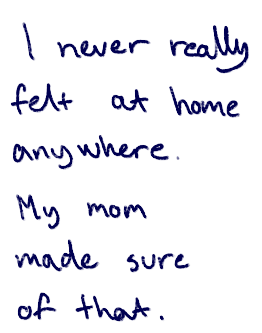 I never really
felt at home
anywhere.
My mom
made sure
of that.